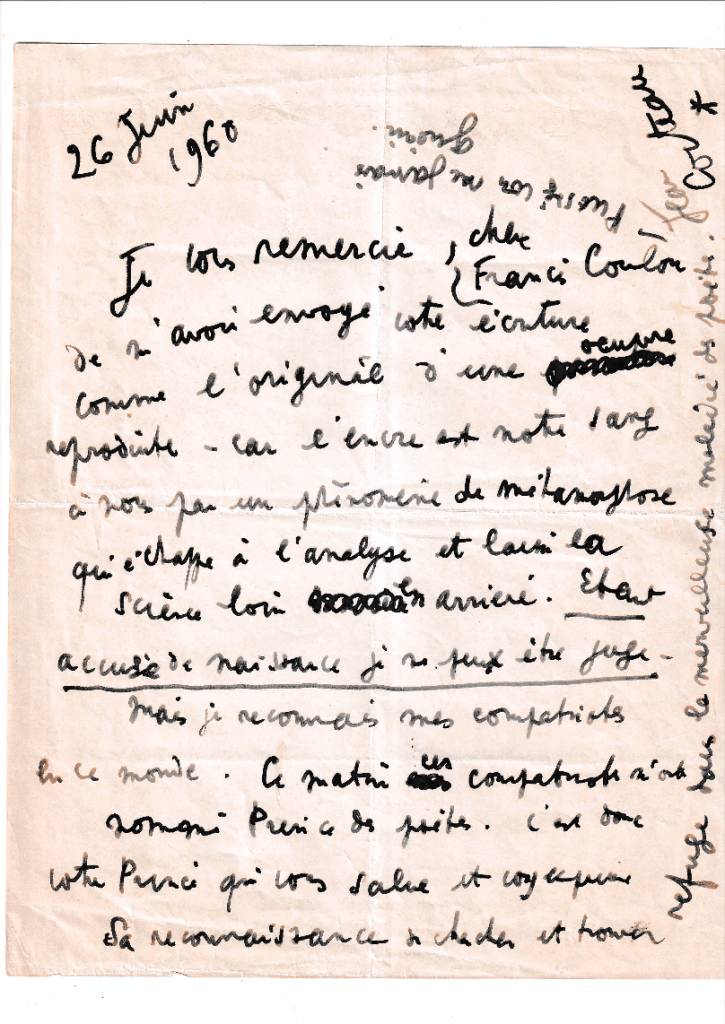 26 Juin
1960
Je vous remercie, cher
Francis Coulon
de m'avoir envoyé votre écriture
comme l'original d'une œuvre
reproduite - car l'encre est notre sang
à nous par un phénomène de métamorphose
qui échappe à l'analyse et laisse la
science loin en arrière. Etant
accusé de naissance je ne peux être juge -
Mais je reconnais mes compatriotes
en ce monde. Ce matin ces compatriotes m'ont
nommé Prince des poètes. C'est donc
votre Prince qui vous salue et
sa reconnaissance de chercher et trouver
refuge dans la merveilleuse maladie des poètes.
Puissiez vous ne jamais
guérir.
Jean
Cocteau
*